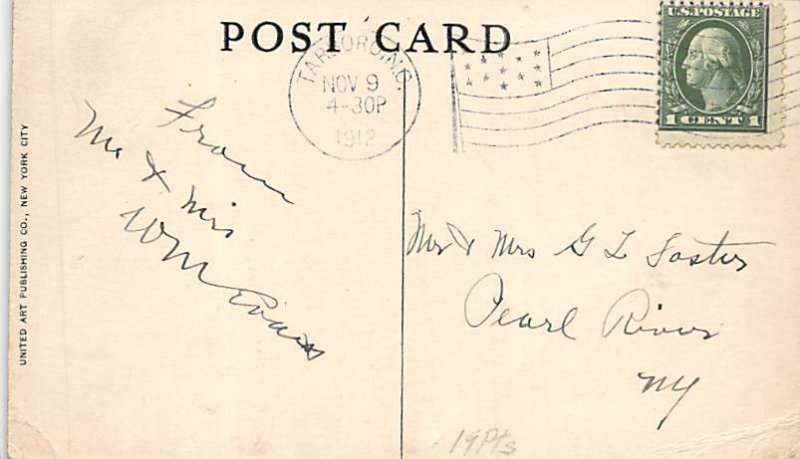 POST CARD
TARBORO, N.C.
NOV 9
4-30P
1912
U.S. POSTAGE
1 CENT 1
From
Mr & Mrs
Wm Evans
Mr & Mrs G L
Pearl River
NY
19Pts
UNITED ART PUBLISHING CO., NEW YORK CITY